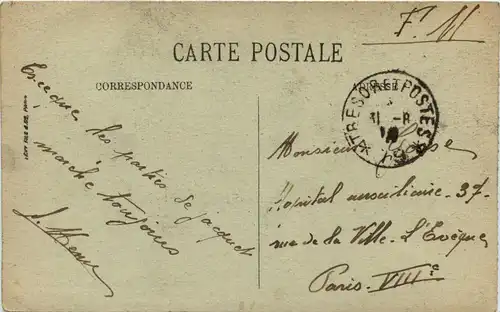 F. M
CARTE POSTALE
CORRESPONDANCE
que les parties de jacquet
marche toujours
LEVY FILS & CIE, PARIS
TRESOR ET POSTES
31 -8
Monsieur
Hôpital auxiliaire. 37.
rue de la Ville-l'Evêque
Paris. VIIIe